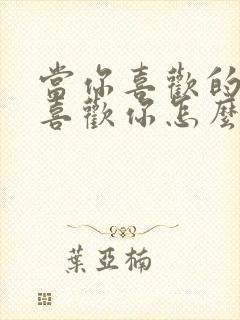 當你喜歡的
喜歡你怎麼
葉亞楠